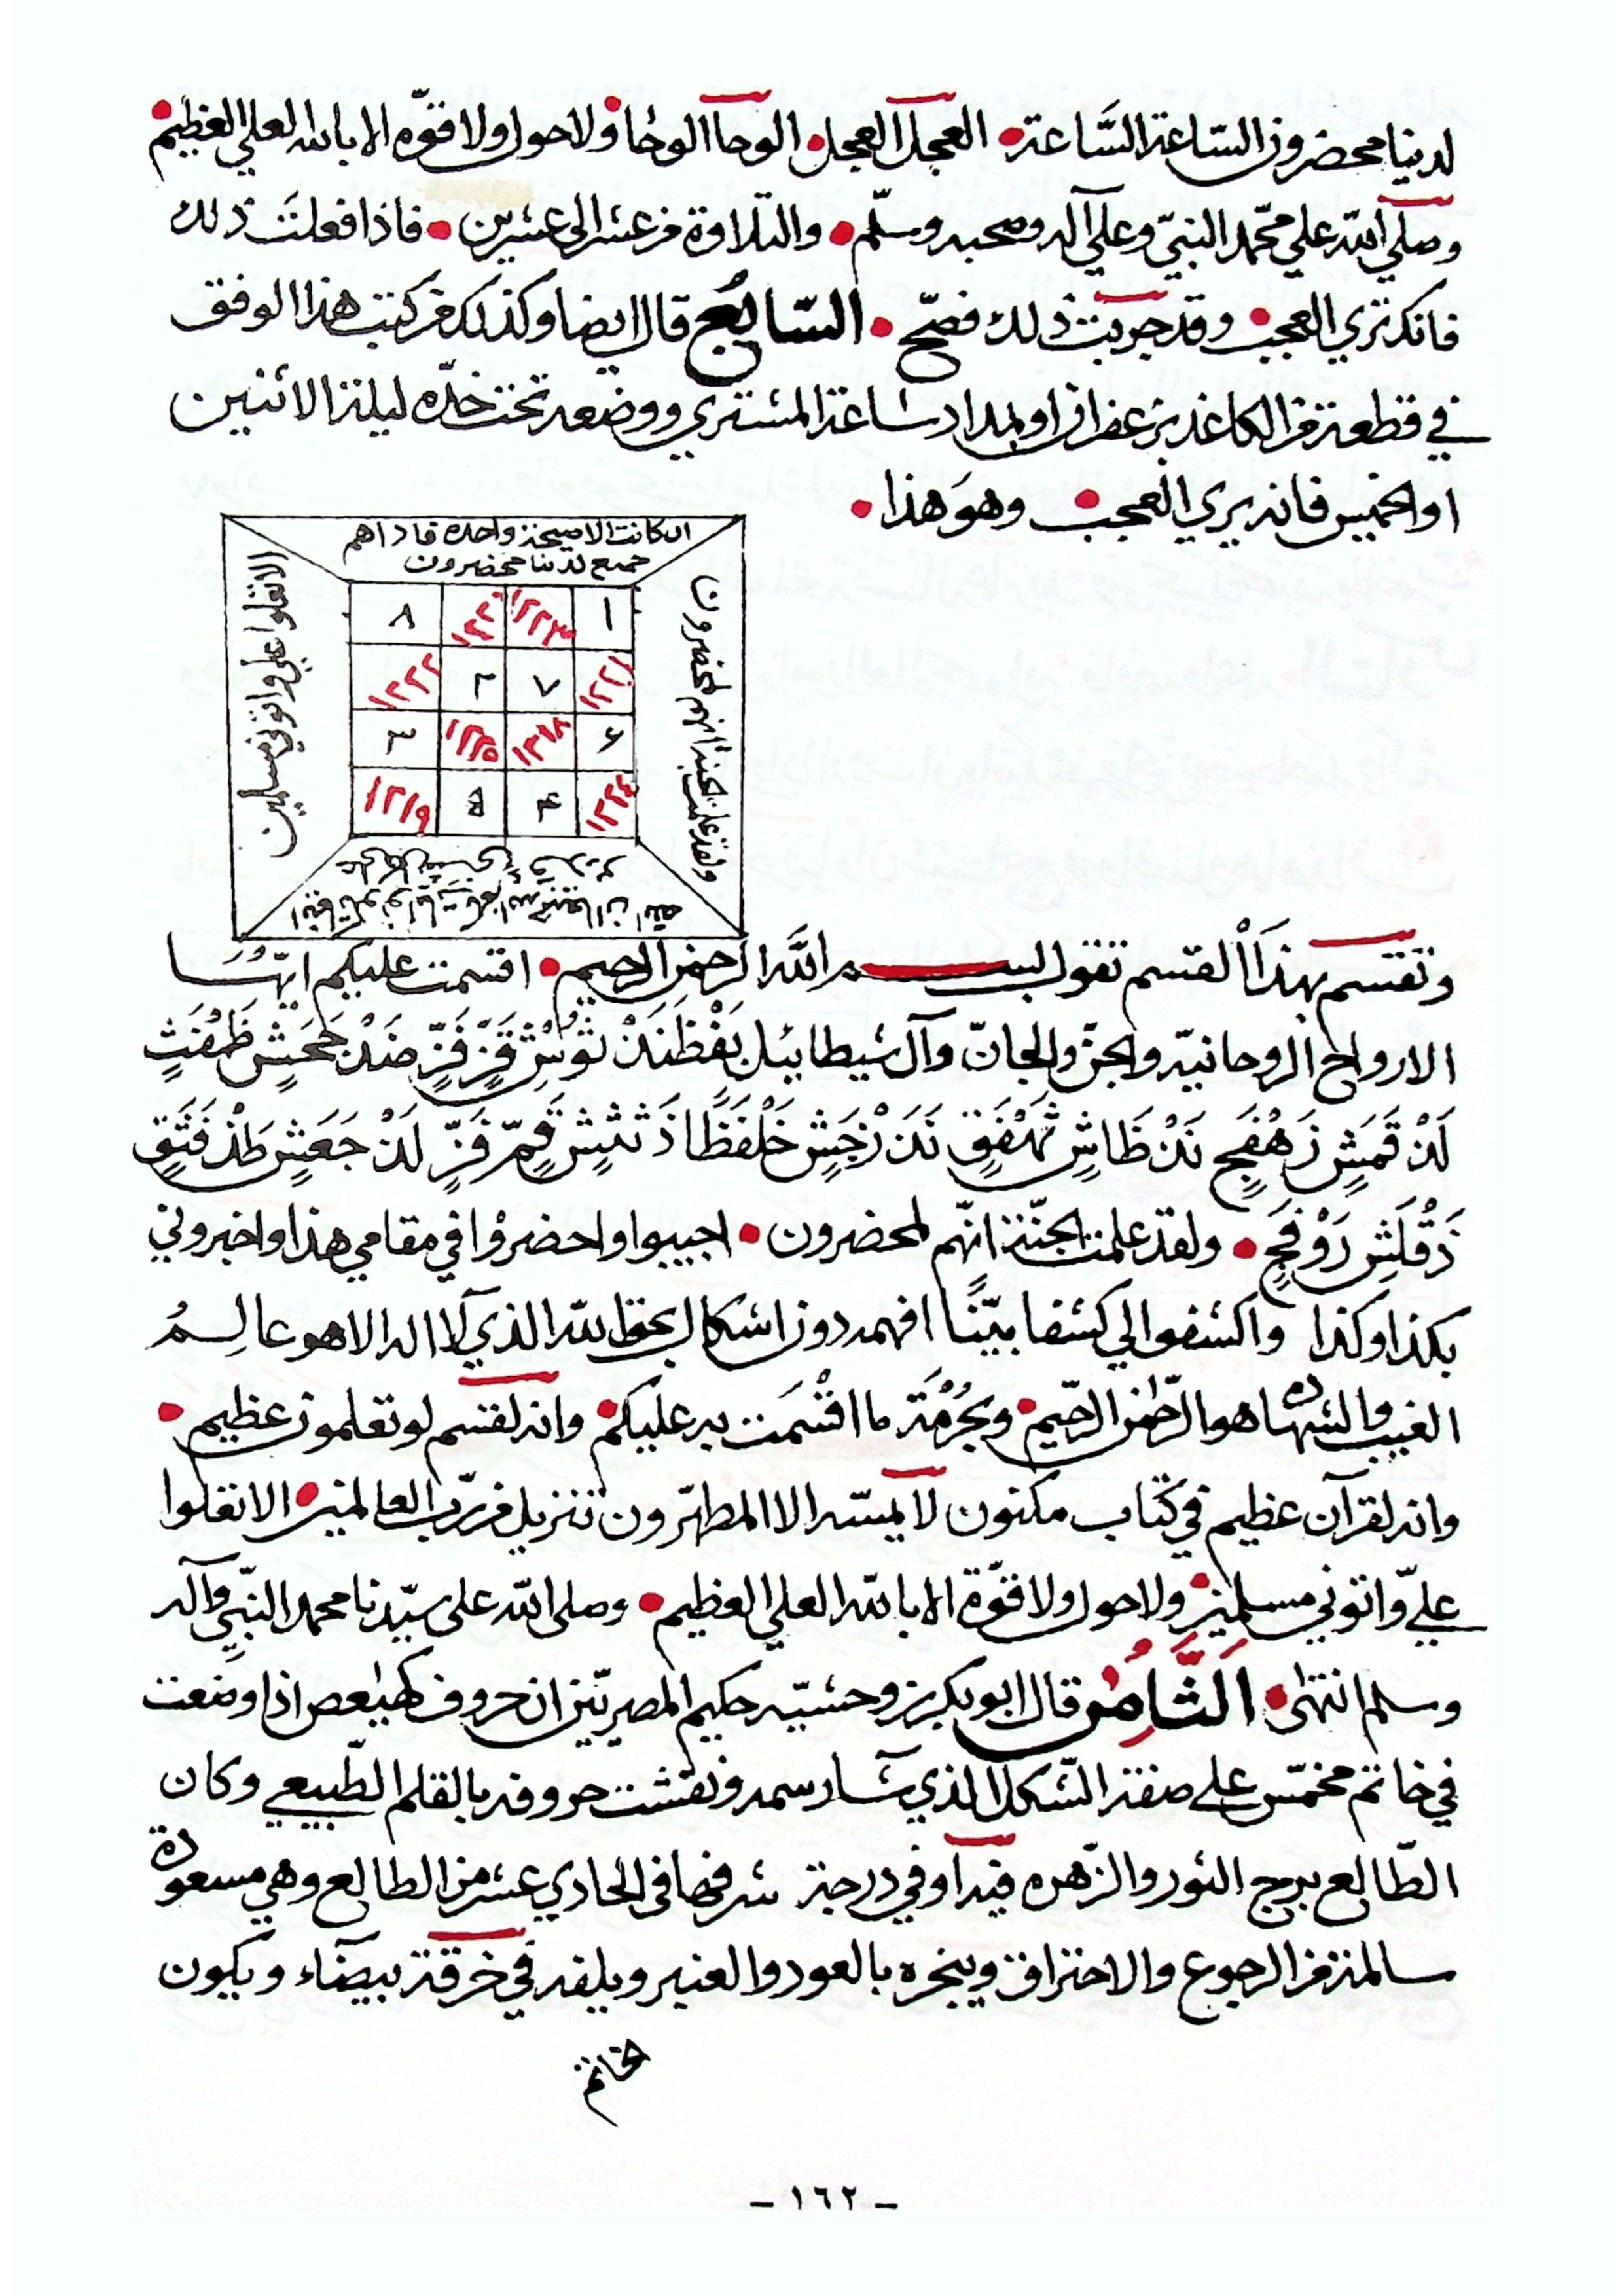 لدينا محضرون الساعة السَّاعة • العجل العجل • الوحا الوحا • ولا حول ولا قوّه الا بالله العلي العظيم •
وصلي الله علي محمّد النبيّ وعلي آله وصحبه وسلّم • والتلاوة من عشر الى عشرين • فاذا فعلت ذلك
فانك تري العجب • وقد جربت ذلك فصّح • السّابع قال ايضا وكذلك من كتب هذا الوفق
في قطعة من الكاغد بزعفران او بمداد ساعة المشتري ووضعه تحت خدّه ليلة الاثنين
او الخميس فانه يري العجب • وهوَ هذا •
ان كانت الا صيحة واحدة فاذا هم
جميع لدينا محضرون
ولقد علمت الجنة انهم لمحضرون
الا تعلوا علي واتوني مسلمين
١ ١٢٢٣ ١٢٢٠ ٨
١٢٢١ ٧ ٢ ١٢٢٢
٦ ١٢١٨ ١٢٢٥ ٣
١٢٢٤ ٤ ٥ ١٢١٩
وتقسم بهذَا القسم تقول بسم الله الرحمن الرحيم • اقسمت عليكم ايّتها
الارواح الروحانيّه والجنّ والجانّ وآل شيطائيل
ولقد علمت الجنّة انّهم لمحضرون • اجيبوا واحضروا في مقامي هذا واخبروني
بكذا وكذا واكشفوا لي كشفا بيّنًا افهمه دون اشكال بحق الله الذي لا اله الا هو عالِمُ
الغيب والشهاده هو الرّحمن الرّحيم • وبحُرْمَة ما اقْسَمت به عليكم • وانه لقسم لو تعلمون عظيم •
وانه لقرآن عظيم في كتاب مكنون لا يمسّه الا المطهّرون تنزيل من ربّ العالمين • الا تعلوا
عليّ واتوني مسلمين • ولا حول ولا قوّة الا بالله العلي العظيم • وصلى الله على سيّدنا محمد النبّي وآله
وسلم انتهى • الثَّامن قال ابو بكر بن وحشيّه حكيم المصريّين ان حروف كهيعص اذا وضعت
في خاتم مخمّس على صفة الشّكل الذي سَارسمه ونقشت حروفه بالقلم الطّبيعي وكان
الطّالع برج الثور والزّهره فيه او في درجة شرفها في الحادي عشر من الطالع وهي مسعودة
سالمة من الرجوع والاحتراق ويبخره بالعود والعنبر ويلفه في خرقة بيضاء ويكون
خاتم
- ١٦٢ -